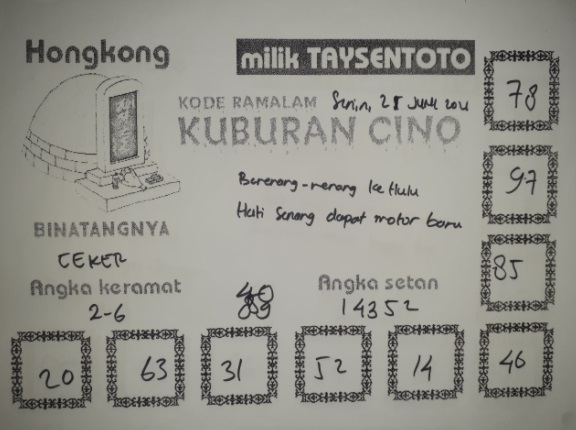 Hongkong
milik TAYSENTOTO
KODE RAMALAM Senin,
KUBURAN CINO
78
Berenang-renang ke
97
Hati Senang dapat motor baru
BINATANGNYA
CEKER
85
Angka keramat
Angka setan
2-6
14352
20
63
31
52
14
46